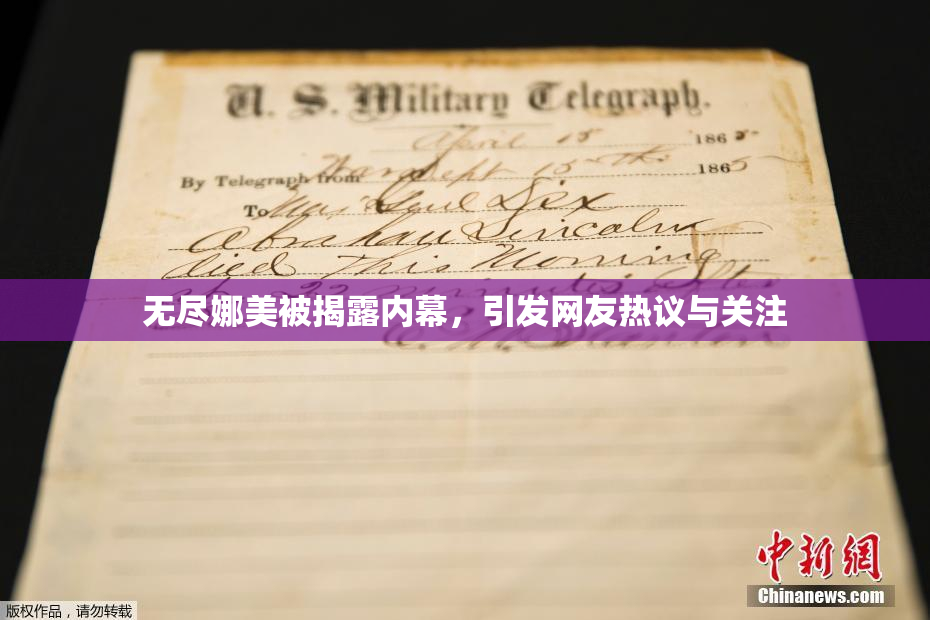 U. S. Military Telegraph.
April 15 1865
By Telegraph from War Dept 15th 1865
To Maj Genl Dix
Abraham Lincoln
died This Morning
22 minutes after
无尽娜美被揭露内幕，引发网友热议与关注
E. M. Stanton
中新网
Chinanews.com
版权作品，请勿转载